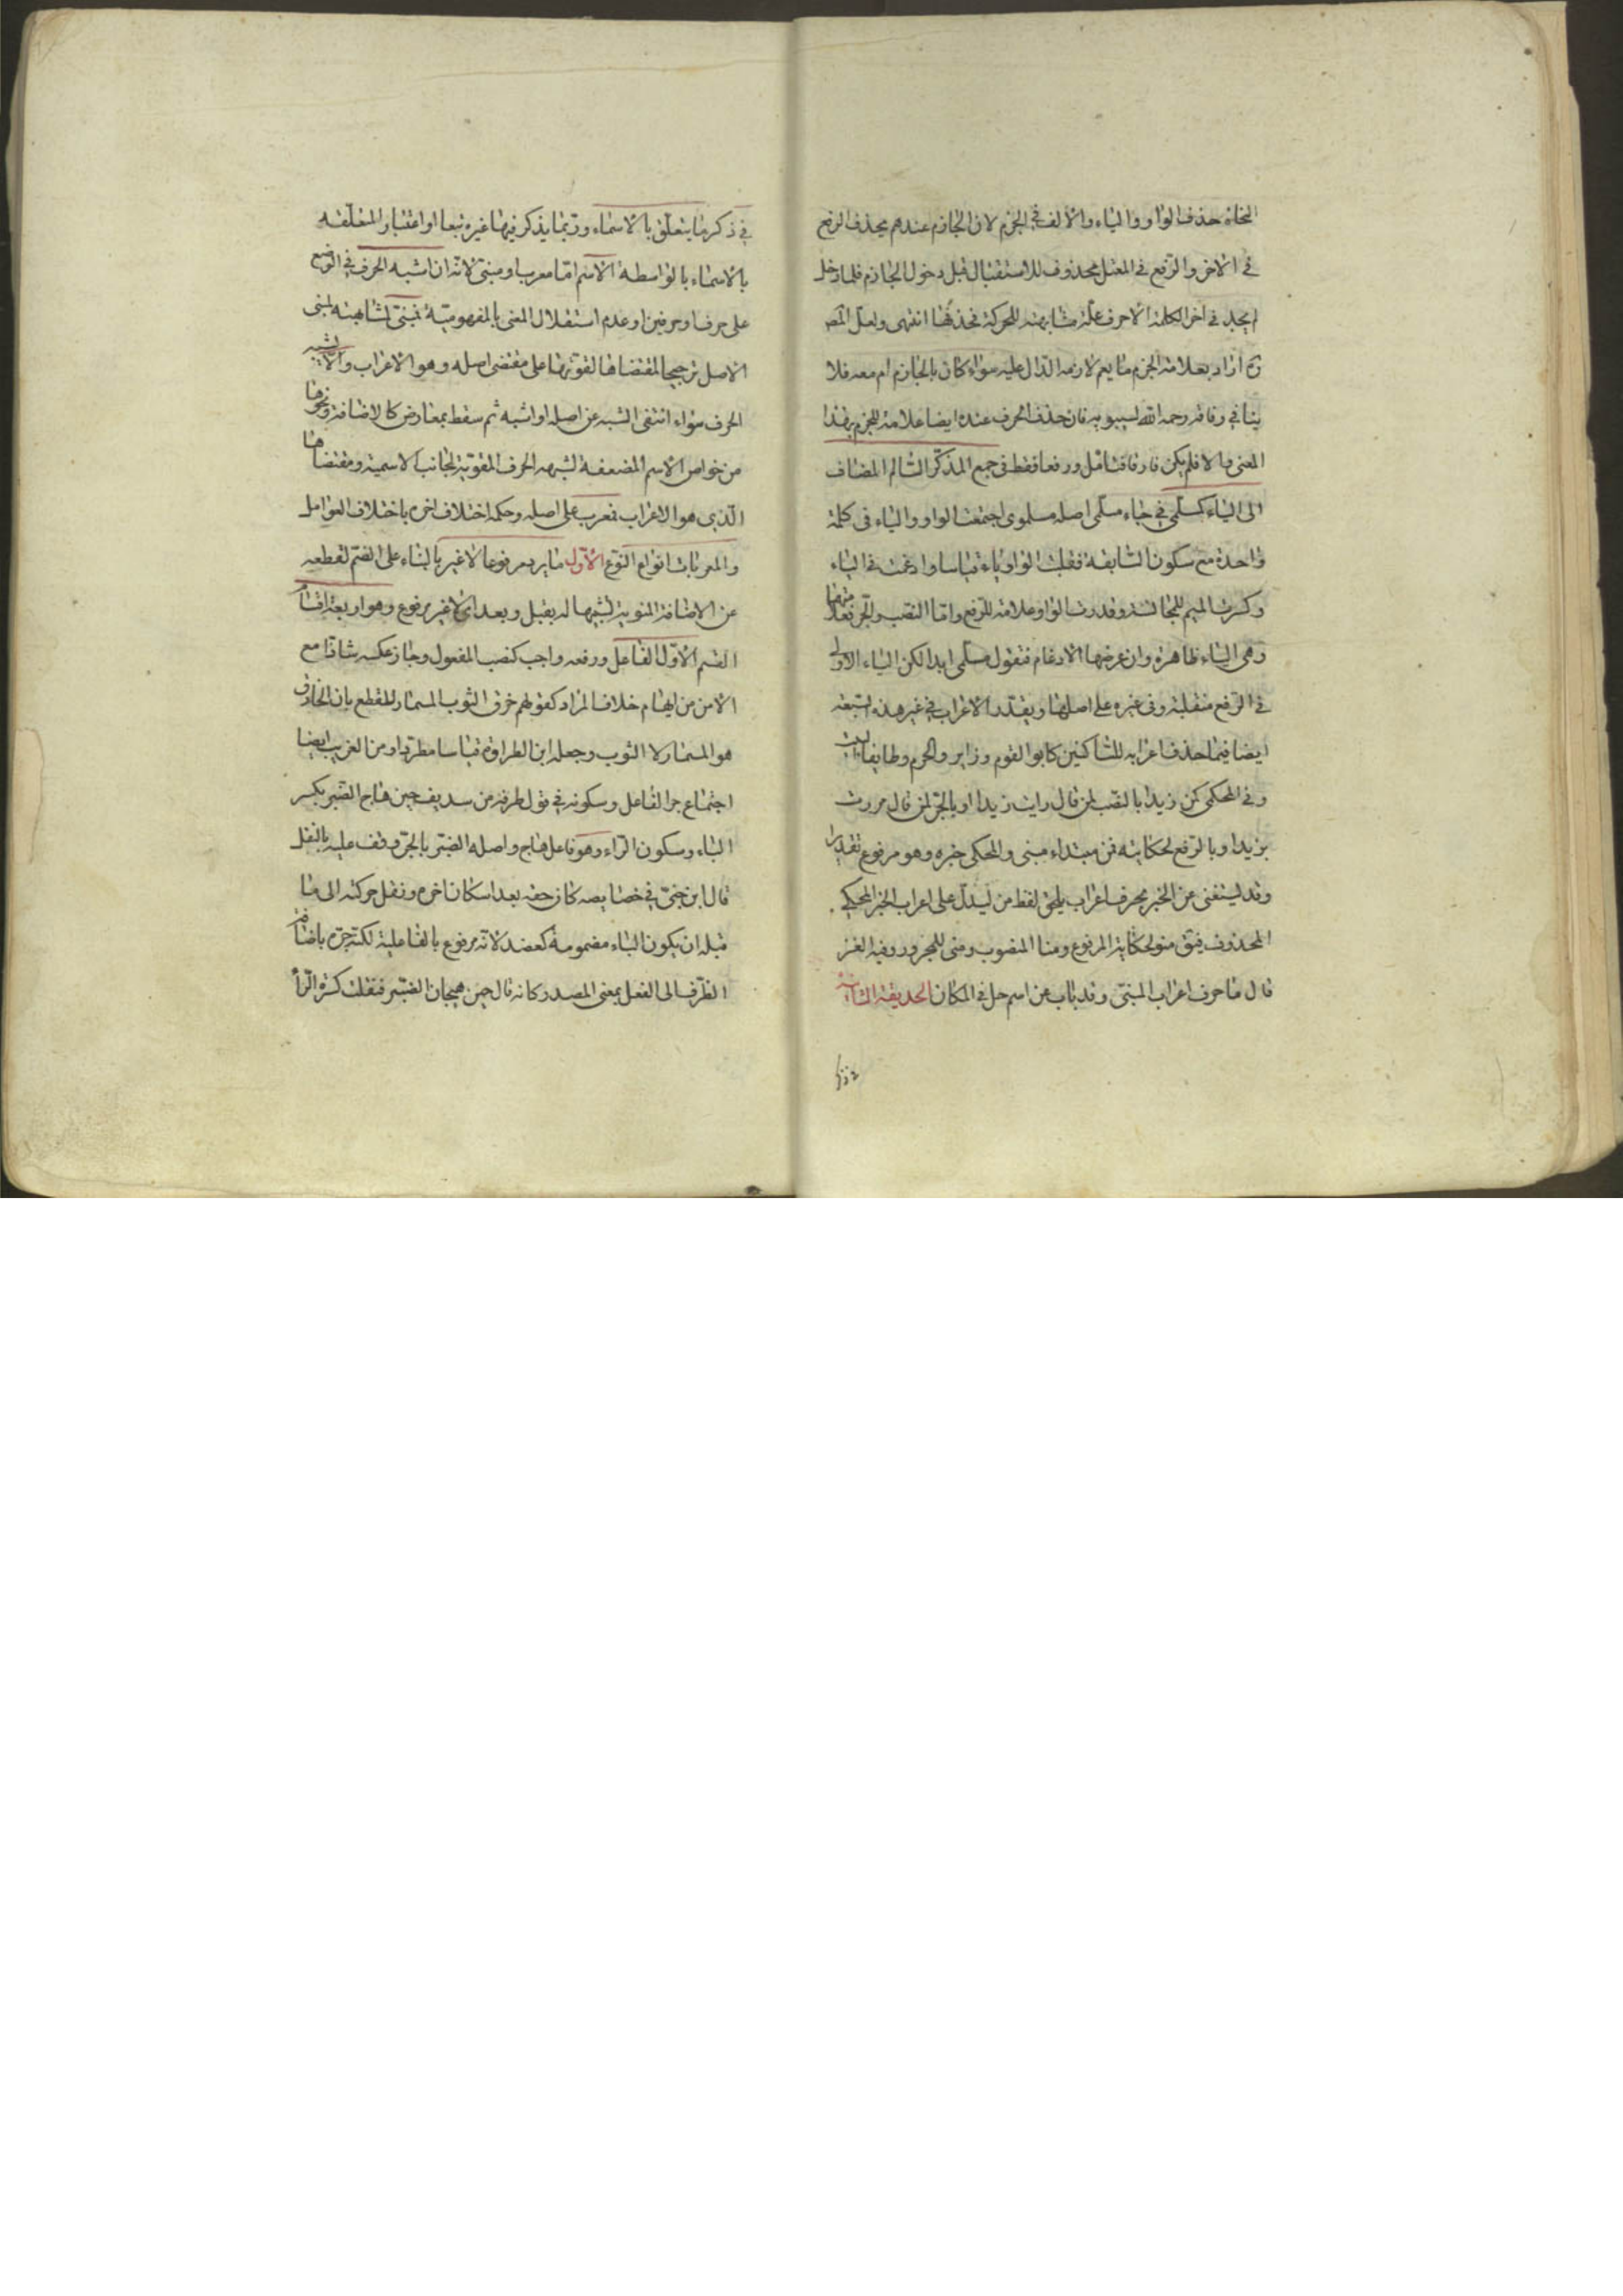 النحاة حذف الواو والياء والالف في الجزم لان الجازم عندهم يحذف الرفع
في الاخر والرفع في المعتل محذوف للاستثقال قبل دخول الجازم فلما دخل
لم يجد في اخر الكلمة الا حرف علة مشابهته للحركة فحذفها انتهى ولعل المص
ره اراد بعلامة الجزم ما يعم لازمه الدال عليه سواء كان بالجازم ام معه فلا
ينافي وفاقه رحمه الله لسيبويه فان حذف الحرف عنده ايضا علامة للجزم بهذا
المعنى والا فلم يكن فارقا فتامل ورفعا فقط في جمع المذكر السالم المضاف
الى الياء كمسلمي في جاء مسلمي اصله مسلموي اجتمعت الواو والياء في كلمة
واحدة مع سكون السابقة فقلبت الواو ياء قياسا وادغمت في الياء
وكسرت الميم للمجانسة وقدرت الواو علامة للرفع واما النصب والجر فعلامتهما
وهي الياء ظاهرة وان عرضها الادغام فتقول مسلمي ابدا لكن الياء الاولى
في الرفع منقلبة وفي غيره على اصلها ويقدر الاعراب في غير هذه السبعة
ايضا فيما حذف اعرابه للساكنين كابوا القوم وزايروا الحرم وطايفا البيت
وفي المحكي كمن زيدا بالنصب لمن قال رايت زيدا او بالجر لمن قال مررت
بزيد او بالرفع لحكايته فمن مبتداء مبنى والمحكي خبره وهو مرفوع تقديرا
وقد يستغنى عن الخبر بحرف اعراب يلحق لفظ من ليدل على اعراب الخبر المحكي
المحذوف فيق منو لحكاية المرفوع ومنا المنصوب ومنى للمجرور وفيه الغز
قال ما حرف اعراب المبنى وقد ناب عن اسم حل في المكان الحديقة الثانية
في ذكر ما يتعلق بالاسماء وربما يذكر فيها غيره تبعا او اعتبار المتعلقه
بالاسماء بالواسطة الاسم اما معرب او مبنى لانه ان اشبه الحرف في الوضع
على حرف او حرفين او عدم استقلال المعنى بالمفهومية فمبنى لمشابهته لمبنى
الاصل ترجيحا لمقتضاها لقوتها على مقتضى اصله وهو الاعراب والا يشبه
الحرف سواء انتفى الشبه عن اصله او اشبه ثم سقط بمعارض كالاضافة ونحوها
من خواص الاسم المضعفة لشبهه الحرف المقوية لجانب الاسمية ومقتضاها
الذي هو الاعراب فمعرب على اصله وحكمه اختلاف اخره باختلاف العوامل
والمعربات انواع النوع الاول ما يرد مرفوعا لا غير بالبناء على الضم لقطعه
عن الاضافة المنوية لشبهها له بقبل وبعد اى لا غير مرفوع وهو اربعة اقسام
القسم الاول الفاعل ورفعه واجب كنصب المفعول وجاز عكسه شاذا مع
الامن من ايهام خلاف المراد كقولهم خرق الثوب المسمار للقطع بان الخارق
هو المسمار لا الثوب وجعله ابن الطراوة قياسا مطردا ومن الغريب ايضا
اجتماع جر الفاعل وسكونه في قول طرفة من سديف حين هاج الصنبر بكسر
الباء وسكون الراء وهو فاعل هاج واصله الصنبر بالجر وقف عليه بالنقل
قال ابن جني في خصايصه كان حقه بعد اسكان اخره ونقل حركته الى ما
قبله ان يكون الباء مضمومة كعضد لانه مرفوع بالفاعلية لكنه جره باضافة
الظرف الى الفعل بمعنى المصدر كانه قال حين هيجان الصنبر فنقلت كسرة الراء